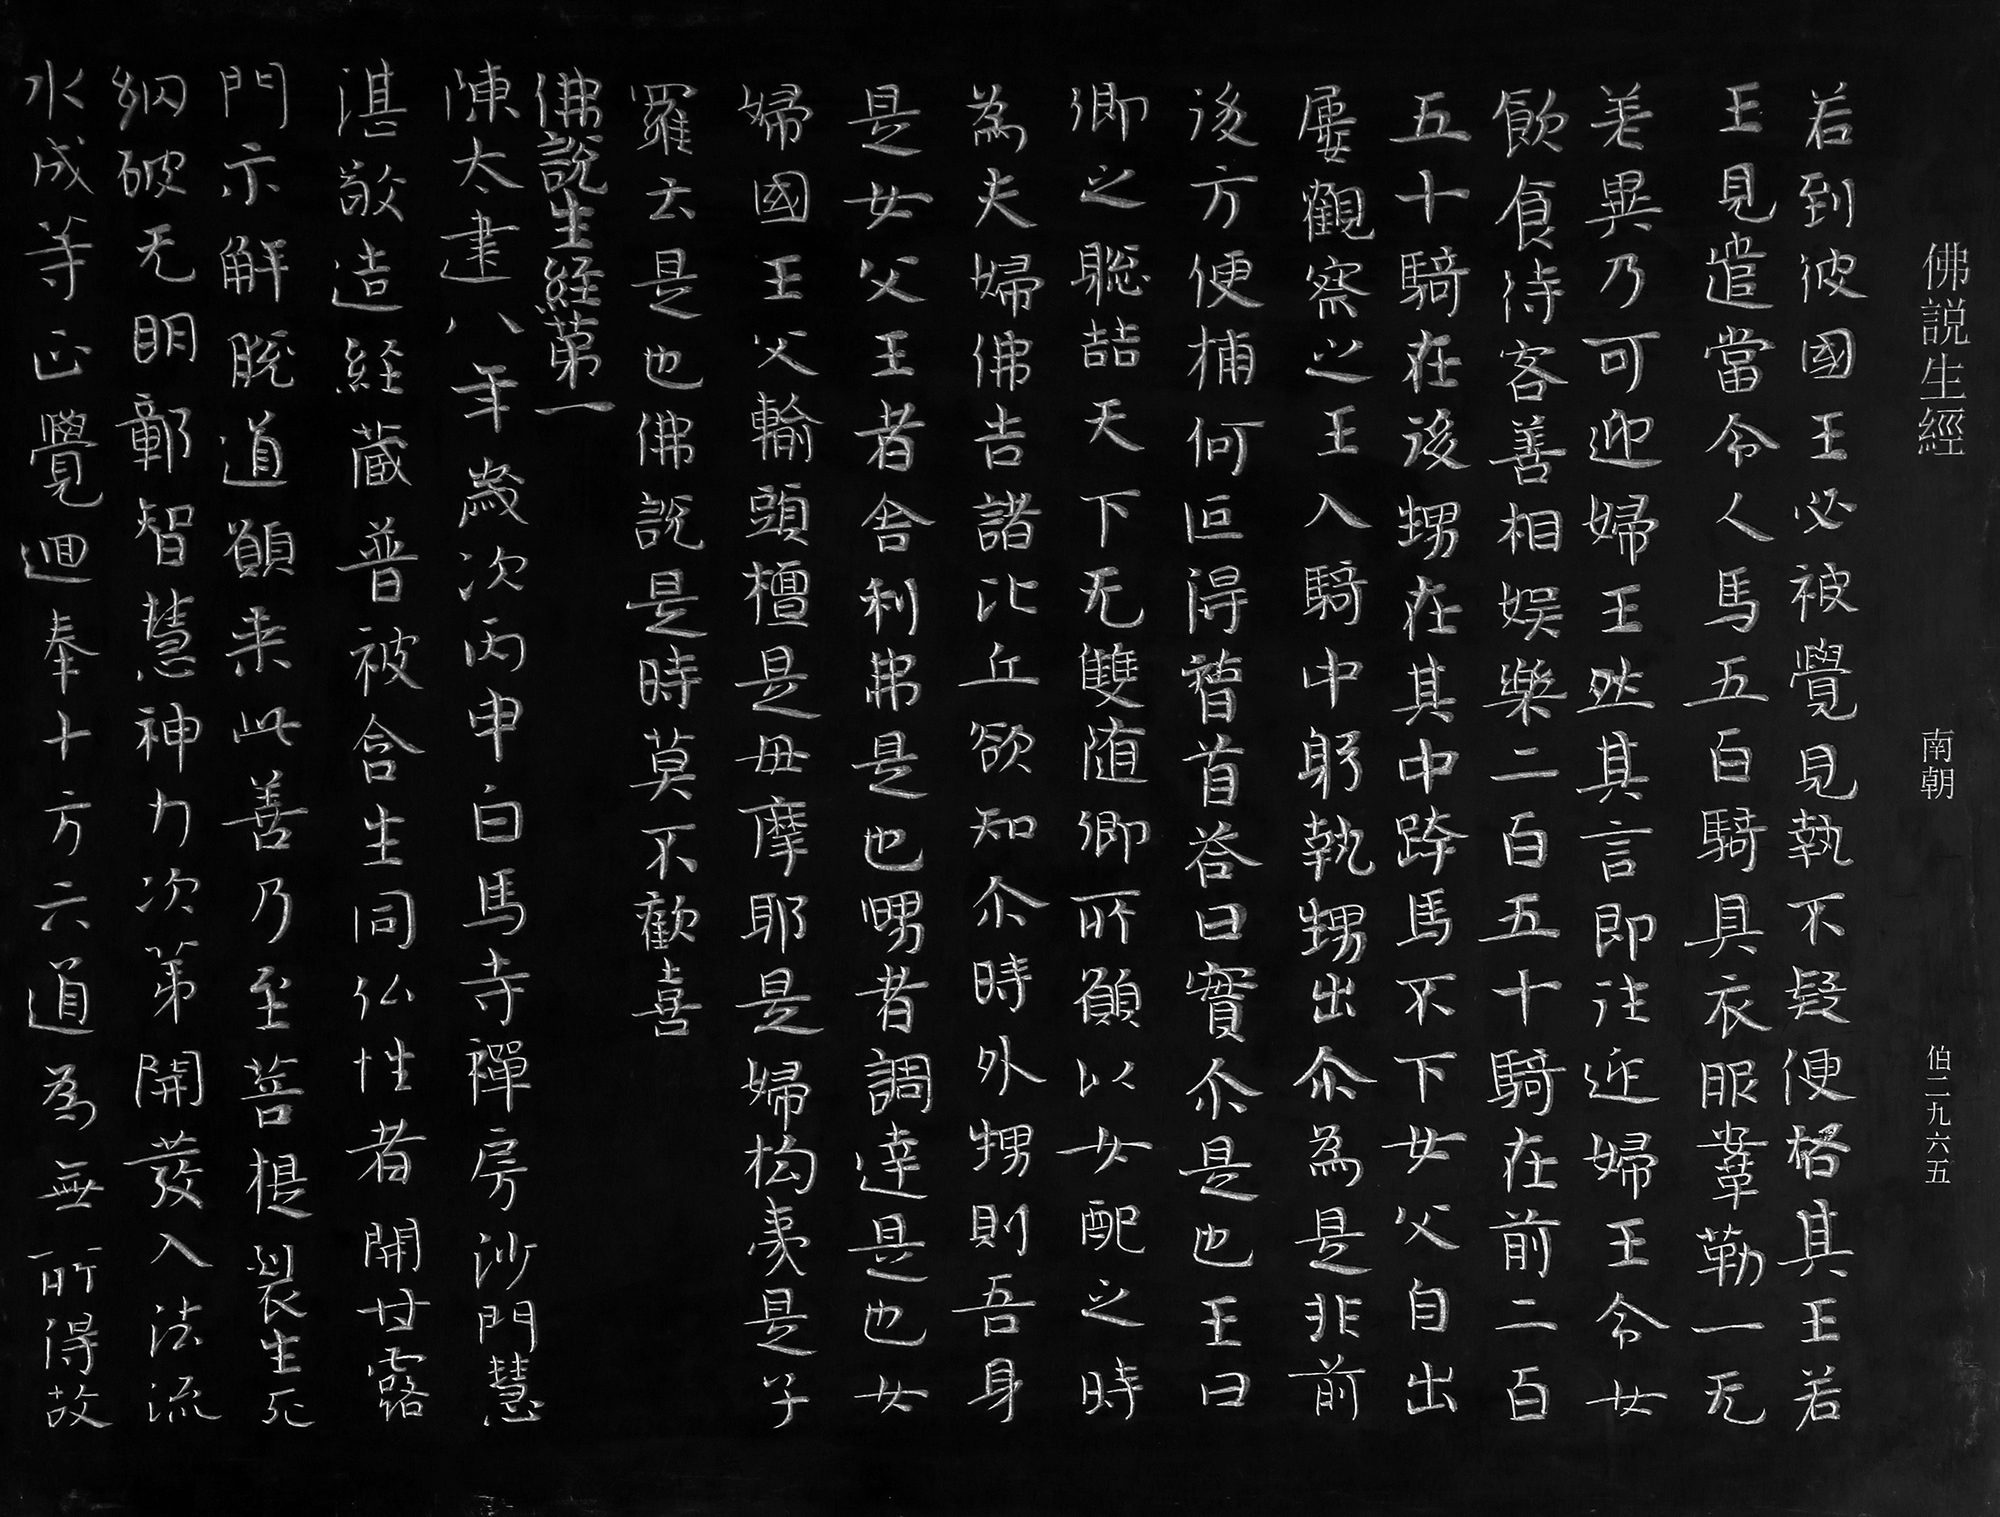 佛説生經 南朝 伯二九六五
若到彼國王必被覺見執不疑便格其王若
王見遣當令人馬五百騎具衣服鞌勒一无
差異乃可迎婦王然其言即往迎婦王令女
飲食待客善相娛樂二百五十騎在前二百
五十騎在後甥在其中跨馬不下女父自出
屢觀察之王入騎中躬執甥出尒為是非前
後方便捕何叵得替首荅曰實尒是也王曰
卿之聡喆天下无雙随卿所願以女配之時
為夫婦佛告諸比丘欲知尒時外甥則吾身
是女父王者舍利弗是也甥者調達是也女
婦國王父輸頭檀是母摩耶是婦拘夷是子
羅云是也佛説是時莫不歡喜
佛説生經第一
陳太建八年歲次丙申白馬寺禪房沙門慧
湛敬造經藏普被含生同仏性者開甘露
門示解脫道願来此善乃至菩提裂生死
網破无明鄣智慧神力次第開發入法流
水成等正覺迴奉十方六道為無所得故